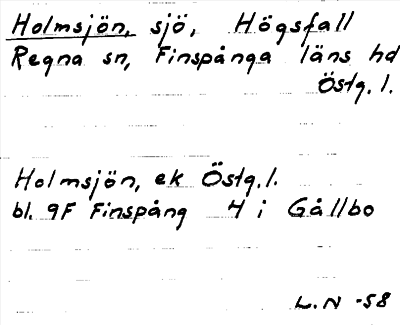 Holmsjön, sjö, Högsfall
Regna sn, Finspånga läns hd
Östg. l.
Holmsjön, ek Östg. l.
bl. 9F Finspång 4 i Gållbo
L.N -58